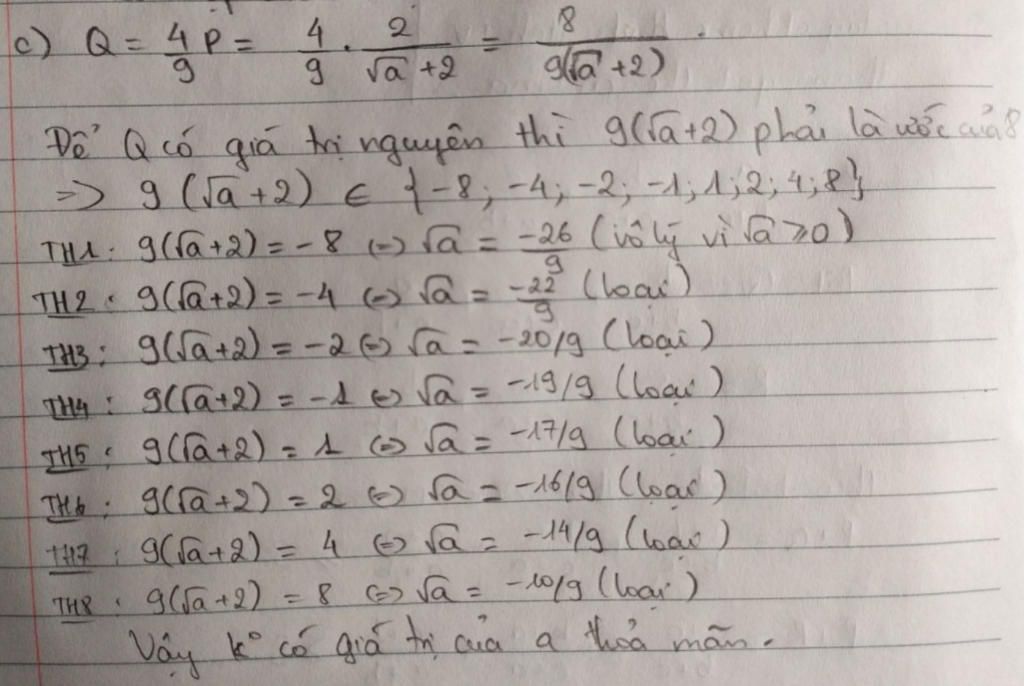 c) Q = 4/9 P = 4/9 . 2/(√a + 2) = 8/(9(√a + 2)) .
Để Q có giá trị nguyên thì 9(√a+2) phải là ước của 8
=> 9 (√a + 2) ∈ {-8; -4; -2; -1; 1; 2; 4; 8}
TH1: 9(√a+2) = -8 <=> √a = -26/9 (vô lý vì √a ≥ 0)
TH2: 9(√a+2) = -4 <=> √a = -22/9 (loại)
TH3: 9(√a+2) = -2 <=> √a = -20/9 (loại)
TH4: 9(√a+2) = -1 <=> √a = -19/9 (loại)
TH5: 9(√a+2) = 1 <=> √a = -17/9 (loại)
TH6: 9(√a+2) = 2 <=> √a = -16/9 (loại)
TH7: 9(√a+2) = 4 <=> √a = -14/9 (loại)
TH8: 9(√a+2) = 8 <=> √a = -10/9 (loại)
Vậy k° có giá trị của a thoả mãn.